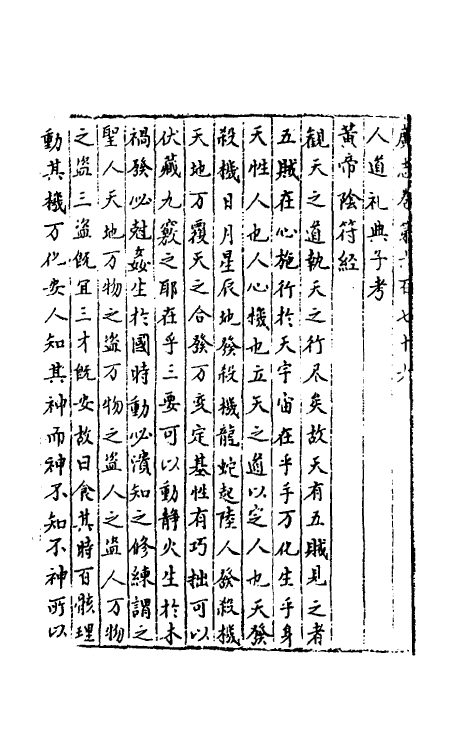 志卷第一百七十
人道礼典子考
黃帝陰符經
觀天之道執天之行尽矣故天有五賊見之者
五賊在心施行於天宇宙在乎手万化生乎身
天性人也人心機也立天之道以定人也天發
殺機日月星辰地發殺機龍蛇起陸人發殺機
天地万覆天之合發万变定基性有巧拙可以
伏藏九竅之耶在乎三要可以動静火生於木
禍發必尅姦生於國時動必潰知之修練謂之
聖人天地万物之盜万物之盜人之盜人万物
之盜三盜旣宜三才旣安故曰食其時百骸理
動其機万化安人知其神而神不知不神所以